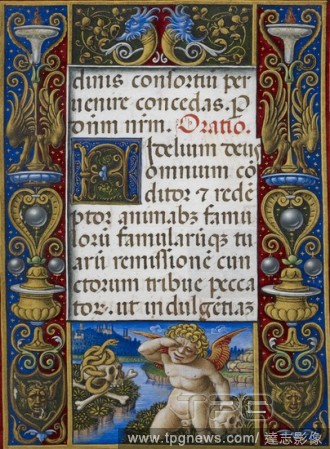 dinis consortiu per
uenire concedas. P
dnim nrm. Oratio.
Fidelium deus
omnium con
ditor & redē
ptor animabz famu
lorū famularūqz tu
arū remissionē cun
ctorum tribue pecca
torz. ut indulgētiaz
TPG
www.tpgnews.com / 達志影像